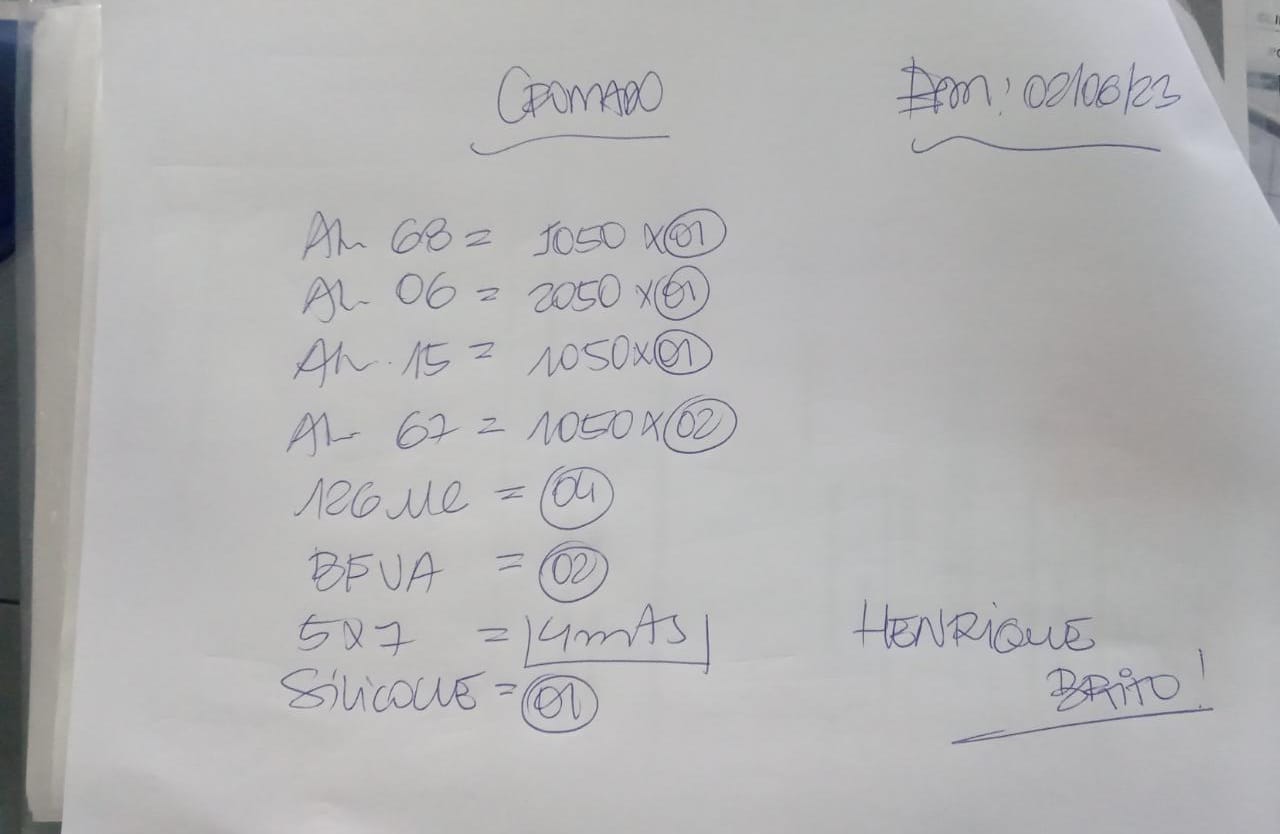 CROMADO
Em: 02/06/23
AL 68 = 1050 x 01
AL 06 = 2050 x 01
AL 15 = 1050 x 01
AL 67 = 1050 x 02
126 = 04
= 02
5x7 = 4mts
SiLiCONE = 01
HENRiQUE
BRiTO!